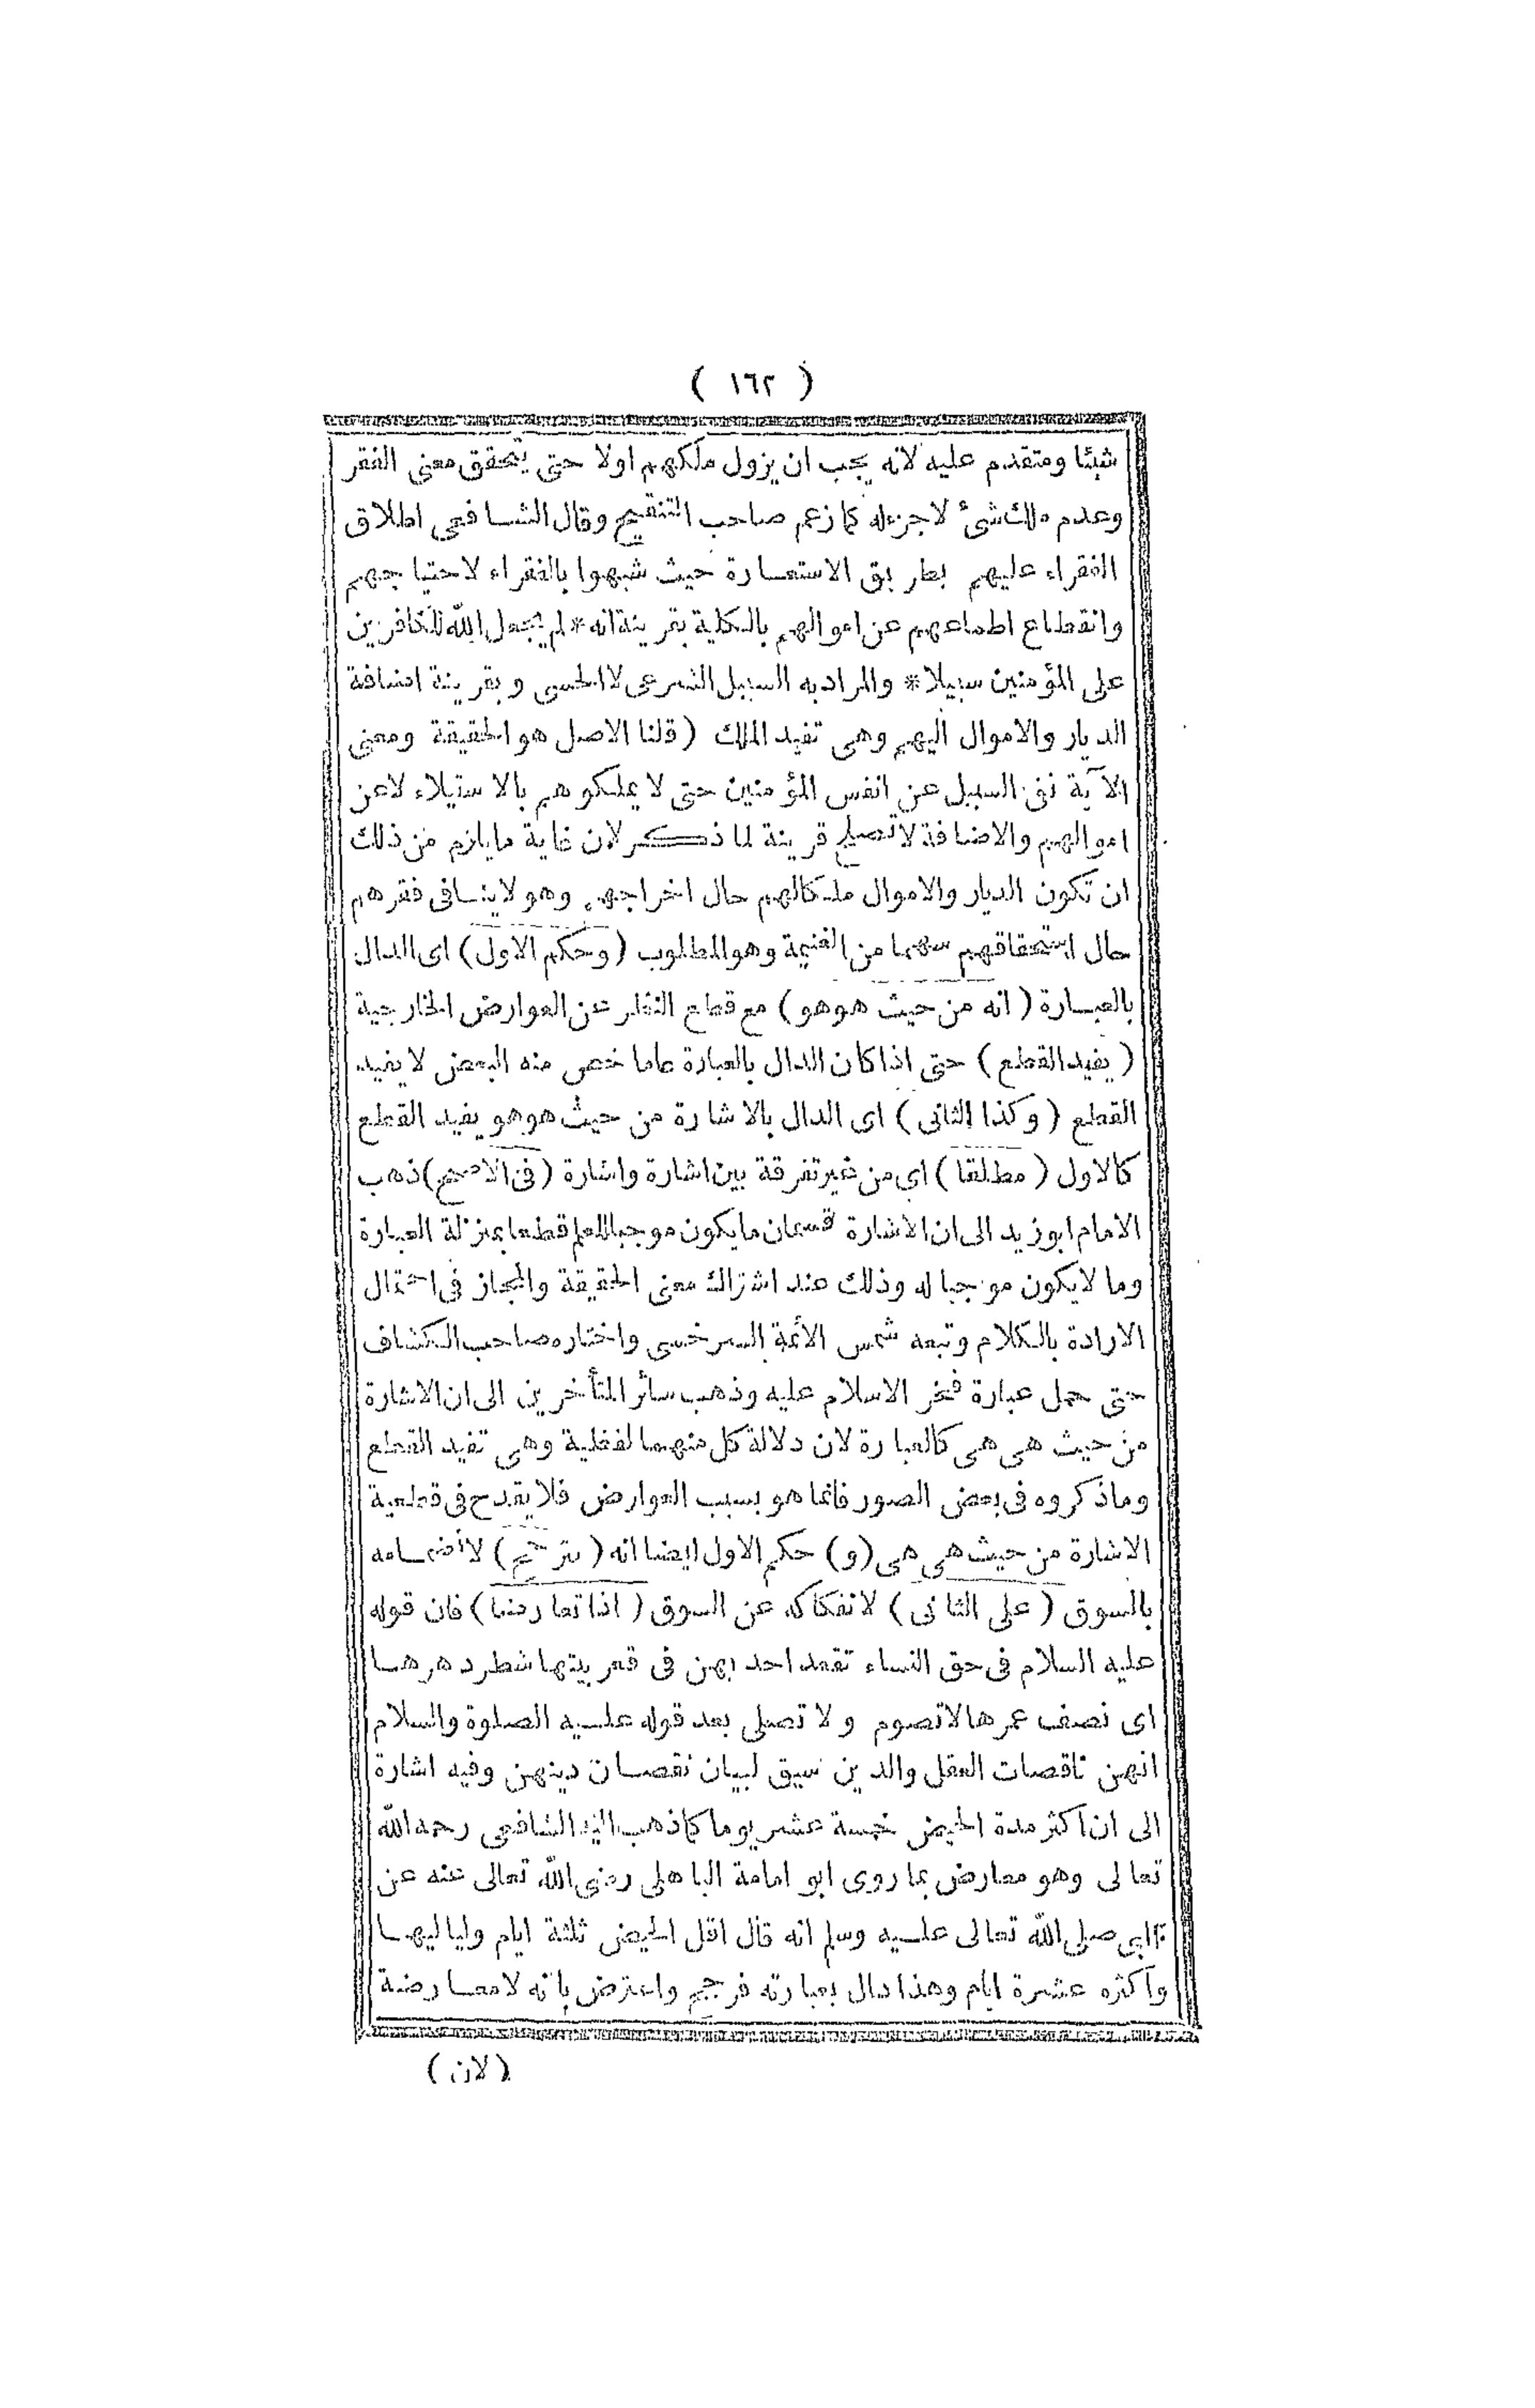 ( ١٦٢ )
شيئا ومتقدم عليه لانه يجب ان يزول ملكهم اولا حتى يتحقق معنى الفقر
وعدم ملك شئ لا جزءله كما زعم صاحب التنقيح وقال الشافعى اطلاق
الفقراء عليهم بطريق الاستعارة حيث شبهوا بالفقراء لاحتياجهم
وانقطاع اطماعهم عن اموالهم بالكلية بقرينة انه * لم يجعل الله للكافرين
على المؤمنين سبيلا * والمراد به السبيل الشرعى لا الحسى وبقرينة اضافة
الديار والاموال اليهم وهى تفيد الملك ( قلنا الاصل هو الحقيقة ومعنى
الآية نفى السبيل عن انفس المؤمنين حتى لا يملكوهم بالاستيلاء لاعن
اموالهم والاضافة لا تصلح قرينة لما ذكر لان غاية ما يلزم من ذلك
ان تكون الديار والاموال ملكا لهم حال اخراجهم وهو لاينافى فقرهم
حال استحقاقهم سهما من الغنيمة وهو المطلوب ( وحكم الاول ) اى الدال
بالعبارة ( انه من حيث هو هو ) مع قطع النظر عن العوارض الخارجية
( يفيد القطع ) حتى اذا كان الدال بالعبارة عاما خص منه البعض لا يفيد
القطع ( وكذا الثانى ) اى الدال بالاشارة من حيث هو هو يفيد القطع
كالاول ( مطلقا ) اى من غير تفرقة بين اشارة واشارة ( فى الاصح ) ذهب
الامام ابو زيد الى ان الاشارة قسمان ما يكون موجبا للعلم قطعا بمنزلة العبارة
وما لايكون موجبا له وذلك عند اشتراك معنى الحقيقة والمجاز فى احتمال
الارادة بالكلام وتبعه شمس الأئمة السرخسى واختاره صاحب الكشاف
حتى حمل عبارة فخر الاسلام عليه وذهب سائر المتأخرين الى ان الاشارة
من حيث هى هى كالعبارة لان دلالة كل منهما لفظية وهى تفيد القطع
وما ذكروه فى بعض الصور فانما هو بسبب العوارض فلا يقدح فى قطعية
الاشارة من حيث هى هى (و) حكم الاول ايضا انه ( يترجح ) لانضمامه
بالسوق ( على الثانى ) لانفكاكه عن السوق ( اذا تعارضا ) فان قوله
عليه السلام فى حق النساء تقعد احديهن فى قعر بيتها شطر دهرها
اى نصف عمرها لاتصوم ولا تصلى بعد قوله عليه الصلوة والسلام
انهن ناقصات العقل والدين سيق لبيان نقصان دينهن وفيه اشارة
الى ان اكثر مدة الحيض خمسة عشر يوما كما ذهب اليه الشافعى رحمه الله
تعالى وهو معارض بما روى ابو امامة الباهلى رضى الله تعالى عنه عن
النبى صلى الله تعالى عليه وسلم انه قال اقل الحيض ثلثة ايام ولياليها
واكثره عشرة ايام وهذا دال بعبارته فرجح واعترض بانه لا معارضة
( لان )